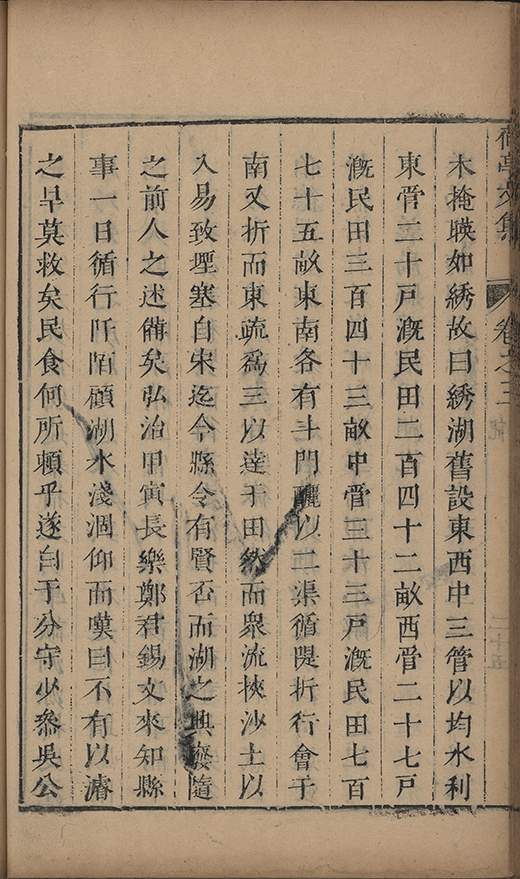 荷亭文集
卷之三 記
二十五
木掩暎如綉故曰綉湖舊設東西中三管以均水利
東管二十戸溉民田二百四十二畝西管二十七戸
溉民田三百四十三畝中管三十三戸溉民田七百
七十五畝東南各有斗門釃以二渠循隄折行會于
南又折而東疏爲三以達于田然而衆流挾沙土以
入易致堙塞自宋迄今縣令有賢否而湖之興廢隨
之前人之述備矣弘治甲寅長樂鄭君錫文來知縣
事一日循行阡陌顧湖水淺涸仰而嘆曰不有以濬
之旱莫救矣民食何所頼乎遂白于分守少叅吳公